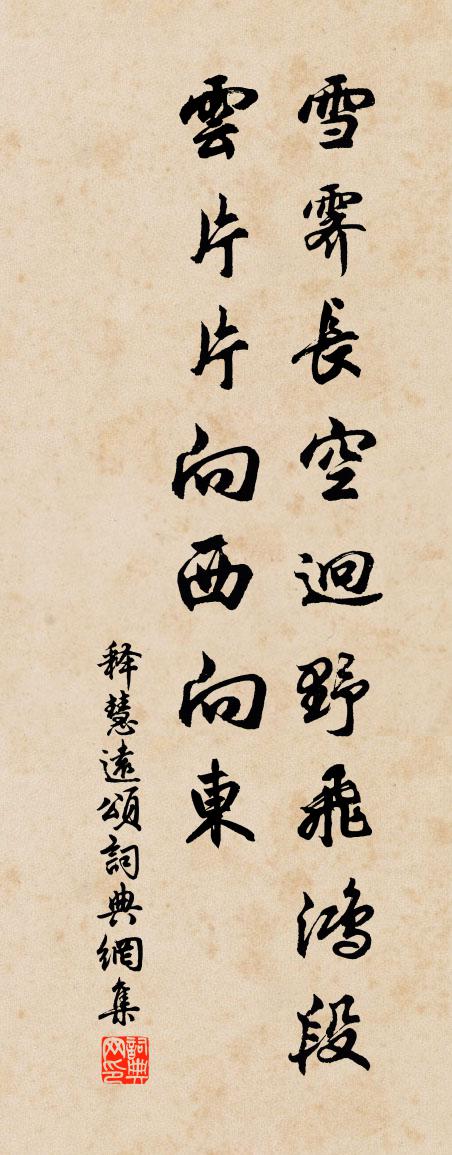 雪霽長空迥野飛鴻段
雲片片向西向東
释慧遠頌詞典網集
詞典网印